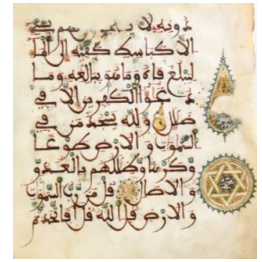 دونه لا يستجيبون لهم بشي
الا كبسط كفيه الى الما
ليبلغ فاه وما هو ببلغه وما
دعوا الكفرين الا في
ضلل ولله يسجد من في
السموت والارض طوعا
وكرها وظللهم بالغدو
والاصال قل من رب السموت
والارض قل الله قل افاتخذتم